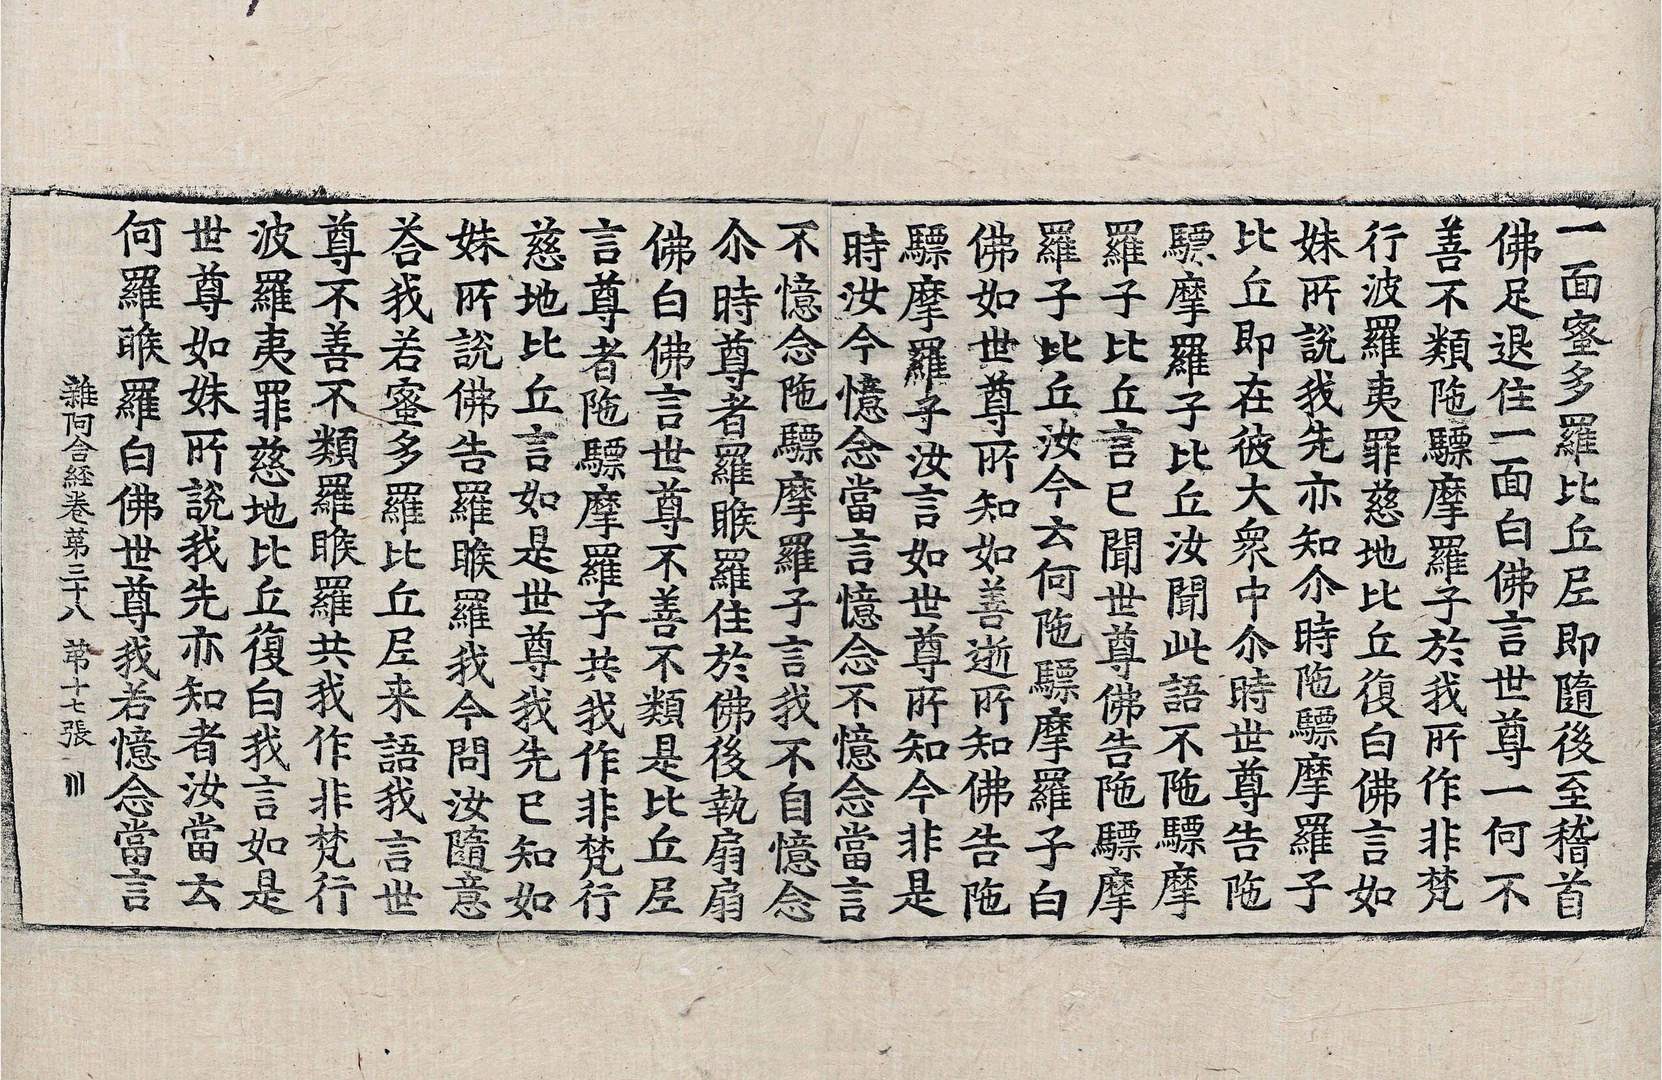 一面蜜多羅比丘尼即隨後至稽首
佛足退住一面白佛言世尊一何不
善不類陁驃摩羅子於我所作非梵
行波羅夷罪慈地比丘復白佛言如
妹所說我先亦知尒時陁驃摩羅子
比丘即在彼大衆中尒時世尊告陁
驃摩羅子比丘汝聞此語不陁驃摩
羅子比丘言已聞世尊佛告陁驃摩
羅子比丘汝今云何陁驃摩羅子白
佛如世尊所知如善逝所知佛告陁
驃摩羅子汝言如世尊所知今非是
時汝今憶念當言憶念不憶念當言
不憶念陁驃摩羅子言我不自憶念
尒時尊者羅睺羅住於佛後執扇扇
佛白佛言世尊不善不類是比丘尼
言尊者陁驃摩羅子共我作非梵行
慈地比丘言如是世尊我先已知如
妹所說佛告羅睺羅我今問汝隨意
荅我若蜜多羅比丘尼来語我言世
尊不善不類羅睺羅共我作非梵行
波羅夷罪慈地比丘復白我言如是
世尊如妹所說我先亦知者汝當云
何羅睺羅白佛世尊我若憶念當言
雜阿含経卷苐三十八 苐十七張